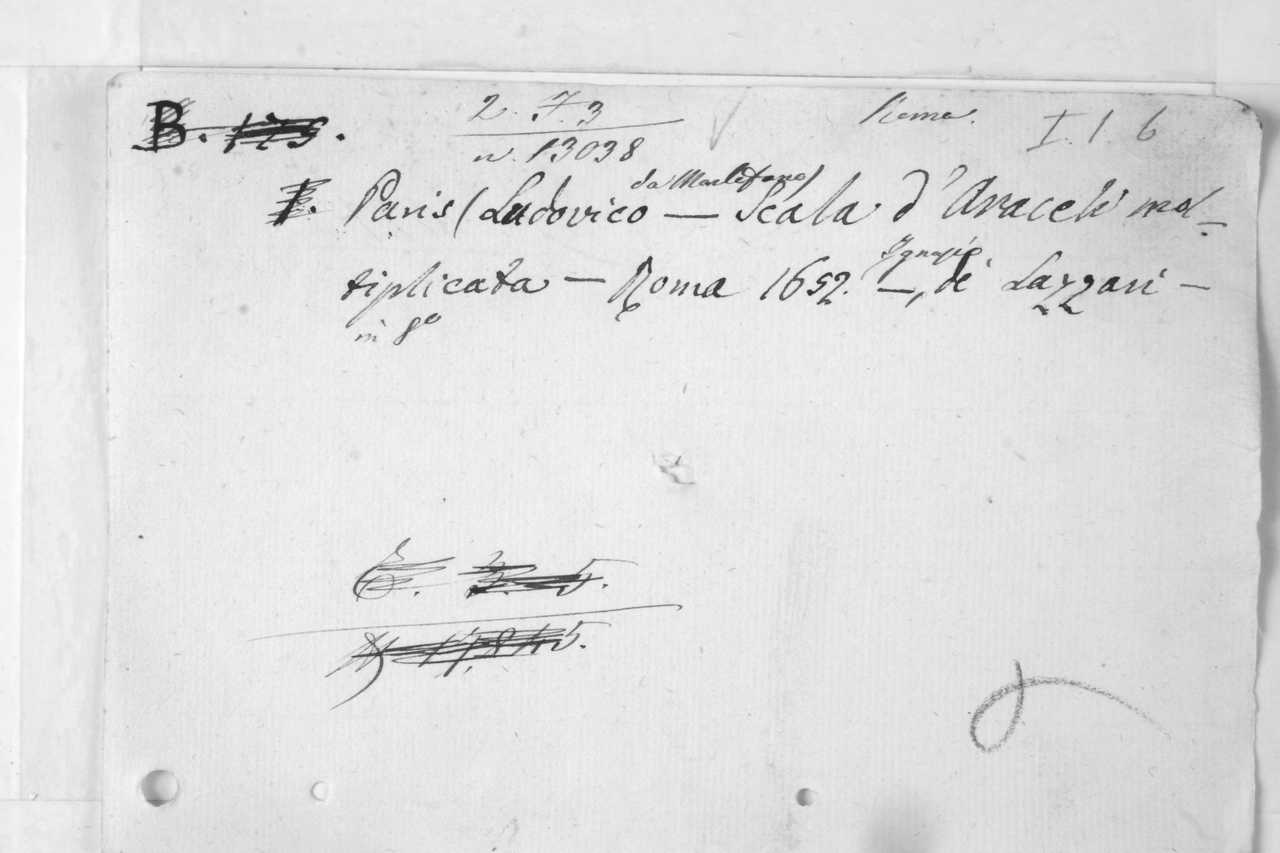 B. 173.
2. 7. 3
n. 13038
Roma.
I. 1. 6
Paris (Ludovico — Scala d'Araceli mol-
tiplicata — Roma 1652. — Ignazio de' Lazzari —
in 8º